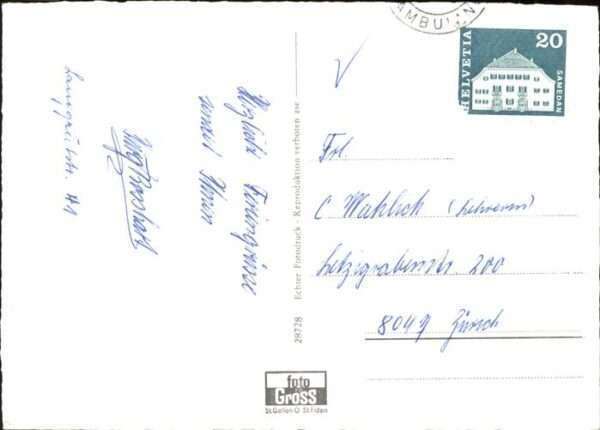 AMBULANT
HELVETIA
20
SAMEDAN
Herzliche Feriengrüsse
sendet Ihnen
28728 Echter Fotodruck - Reproduktion verboten
Frl.
C. Wahlich (Lehrerin)
Letzigrabenstr. 200
8049 Zürich
foto
GROSS
St.Gallen O St.Fiden